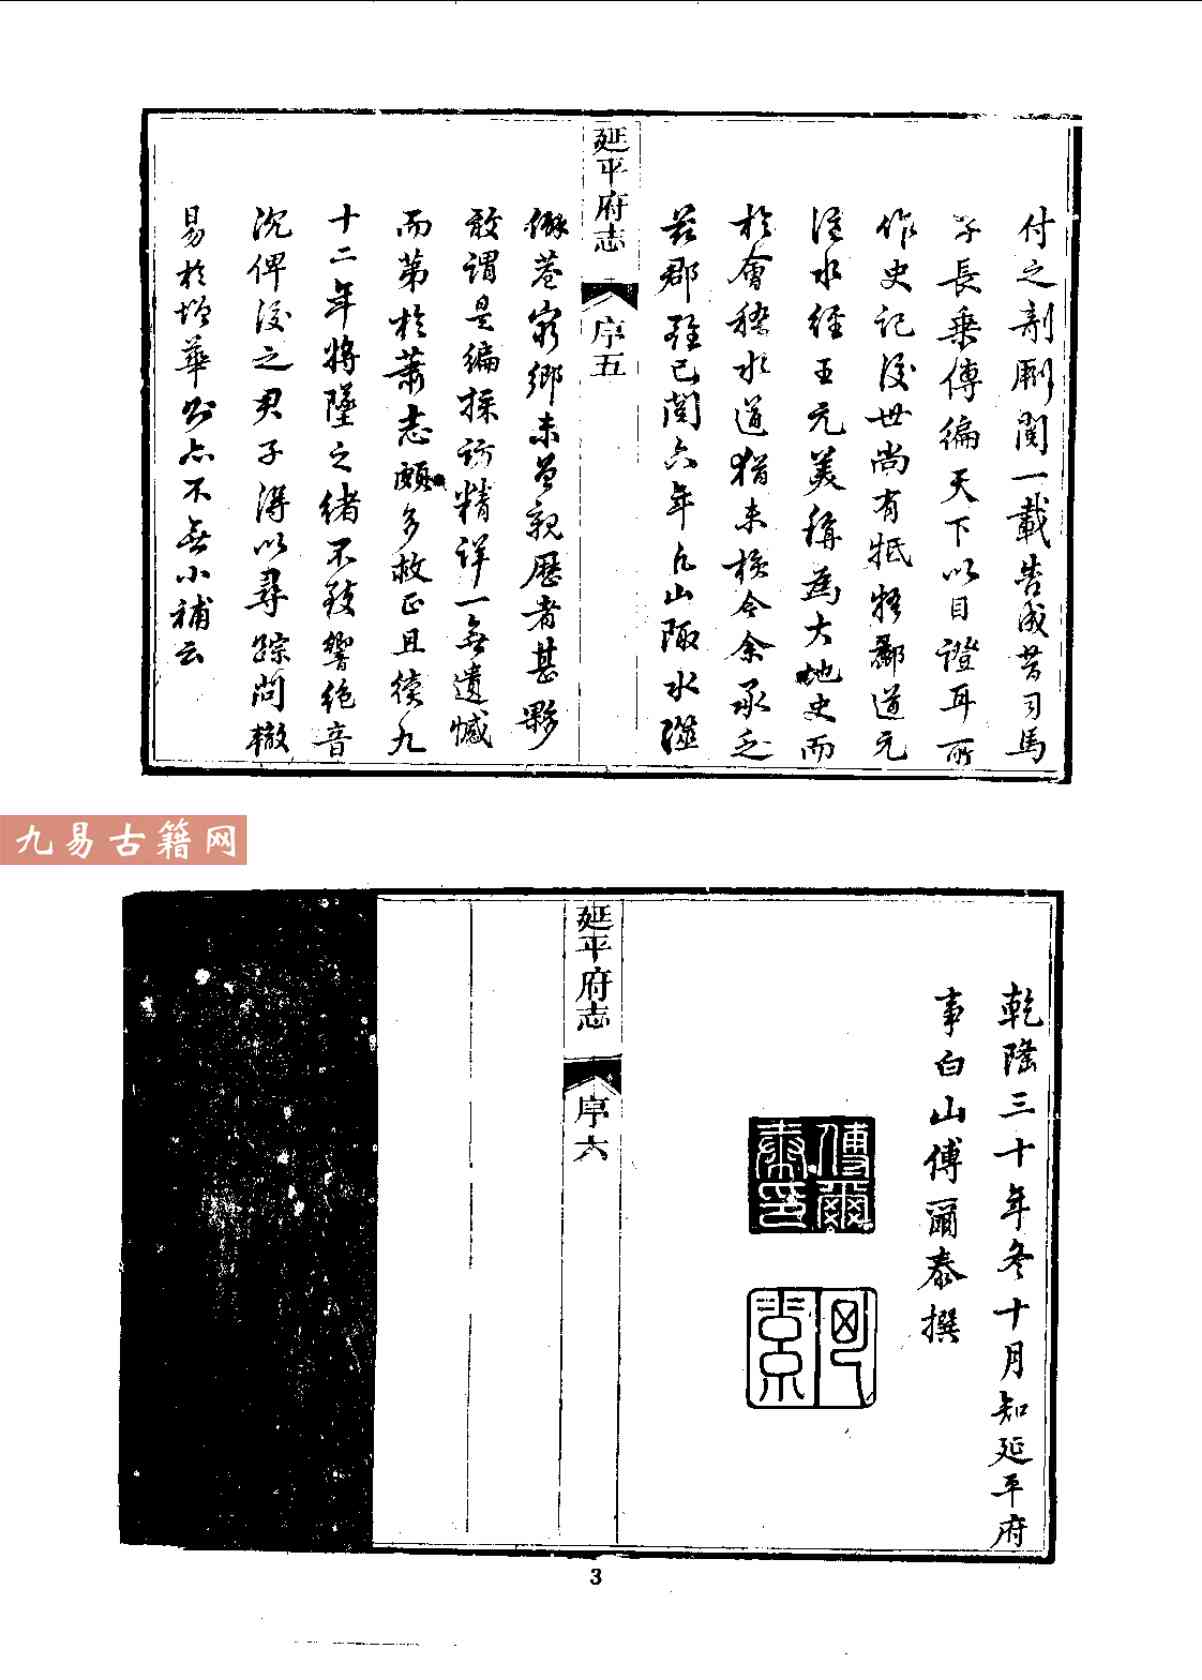 付之剞劂閱一載告成昔司馬
子長乘傳編天下以目證耳所
作史記後世尚有牴牾酈道元
注水經王元美稱為大地史而
於會稽水道猶未核今余承乏
茲郡雖已閱六年凡山陬水澨
延平府志
序五
僻巷窮鄉未曾親歷者甚夥
敢謂是編採訪精詳一無遺憾
而第於蕭志頗多救正且續九
十二年將墜之緒不致響絕音
沉俾後之君子得以尋踪問轍
易於增華則亦不無小補云
九易古籍网
乾隆三十年冬十月知延平府
事白山傅爾泰撰
傅爾泰印
延平府志
序六
3